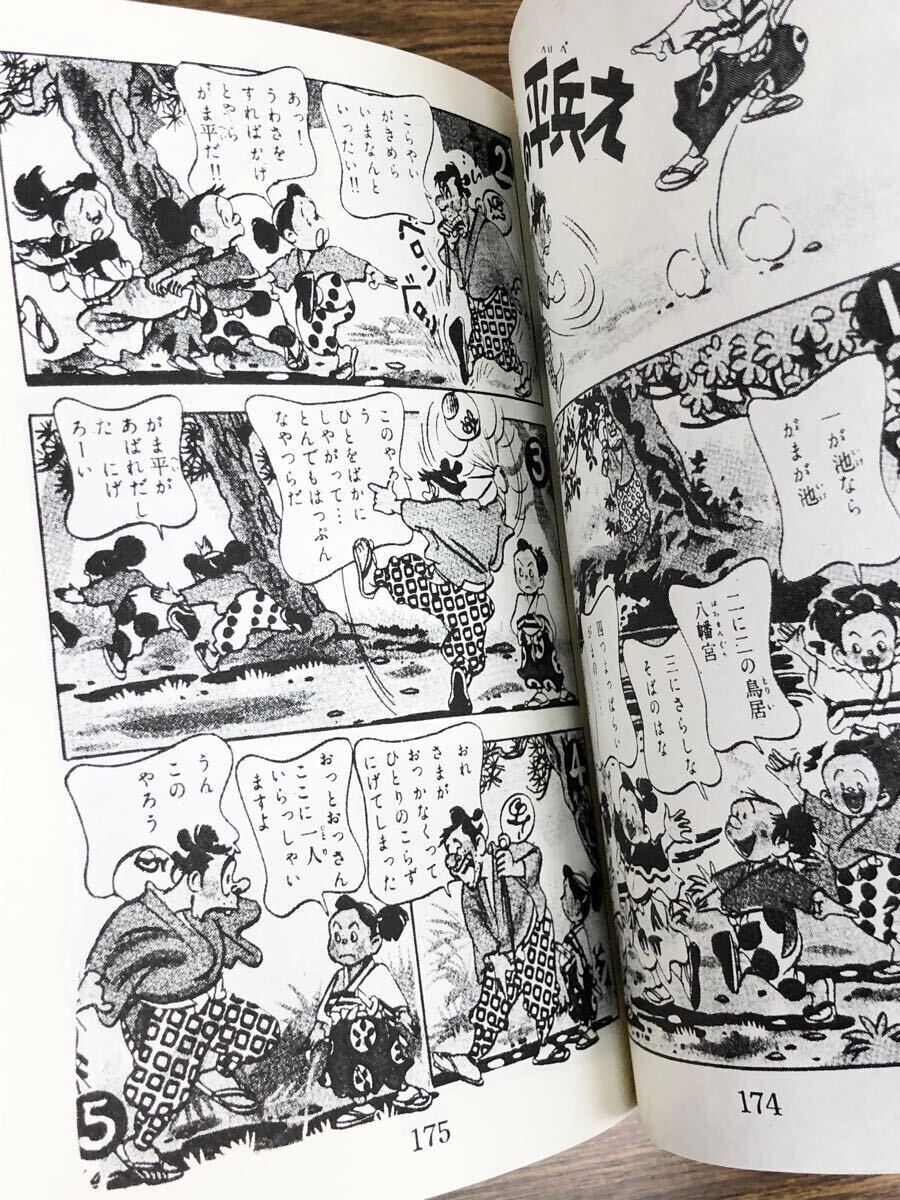 平兵え
へいべ
1
一が池なら
がまが池
いけ
いけ
二に二の鳥居
とりい
八幡宮
はちまんぐう
三にさらしな
そばのはな
四つよっぱらい
174
2
こらやい
がきめら
いまなんと
いったい!!
あっ!
うわさを
すればかげ
とやら
がま平だ!!
ベロンベロン
3
このやろ
う
ひとをばかに
しやがって…
とんでもはっぷん
なやつらだ
がま平が
あばれだし
た にげ
ろーい
4
おれ
さまが
おっかなくって
ひとりのこらず
にげてしまった
5
おっとおっさん
ここに一人
ひとり
いらっしゃい
ますよ
うん
この
やろう
175